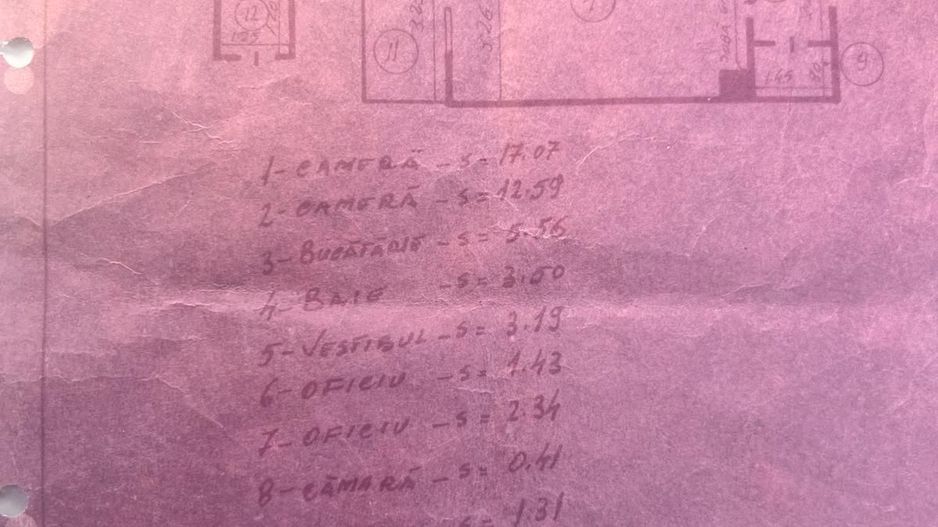 12
11
9
1.45
1- CAMERĂ - S = 17.07
2- CAMERĂ - S = 12.59
3- BUCĂTĂRIE - S = 5.56
4- BAIE - S = 3.60
5- VESTIBUL - S = 3.19
6- OFICIU - S = 1.43
7- OFICIU - S = 2.34
8- CĂMARĂ - S = 0.41
S = 1.31